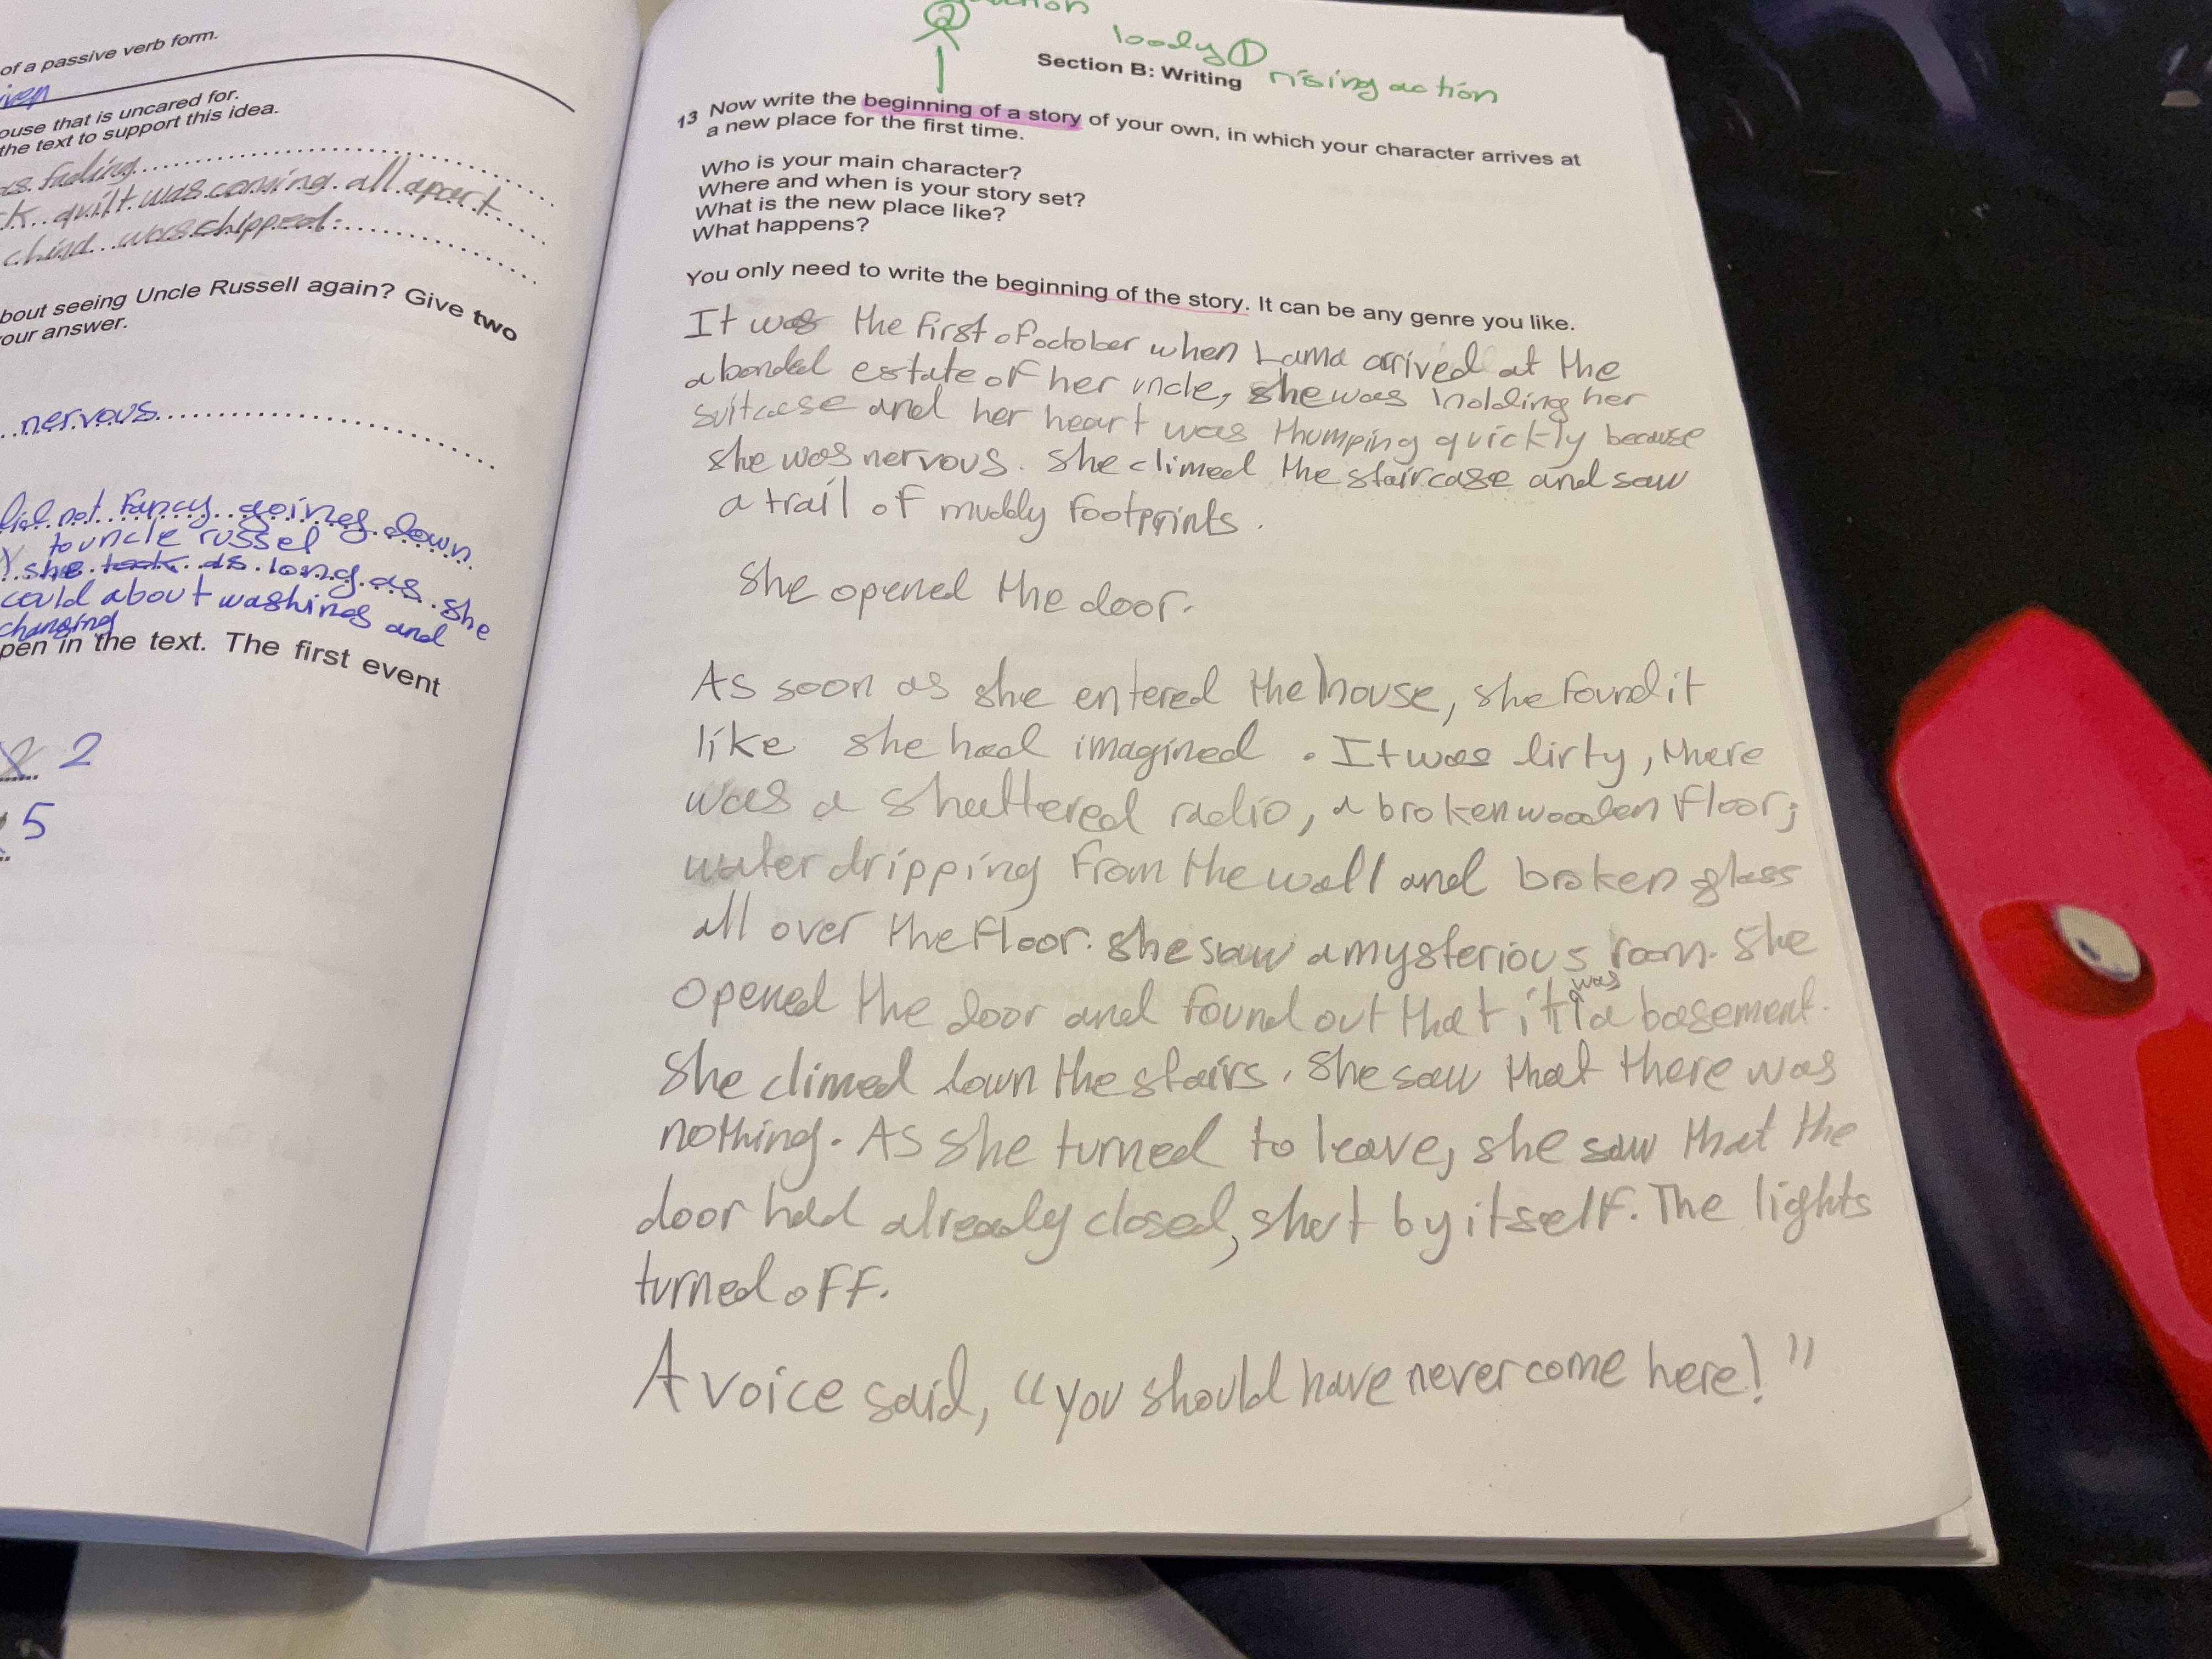 of a passive verb form.
ouse that is uncared for.
the text to support this idea.
as fading
quilt was coming all apart
was chipped.
bout seeing Uncle Russell again? Give two
our answer.
nervous
not fancy going down
to uncle russel
she took as long as she
could about washing and
changing
pen in the text. The first event
2
5
2
body 1
rising action
Section B: Writing
13 Now write the beginning of a story of your own, in which your character arrives at
a new place for the first time.
Who is your main character?
Where and when is your story set?
What is the new place like?
What happens?
You only need to write the beginning of the story. It can be any genre you like.
It was the first of october when Lama arrived at the
abonded estate of her uncle, she was holding her
suitcase and her heart was thumping quickly because
she was nervous. She climed the staircase and saw
a trail of muddy footprints.
She opened the door.
As soon as she entered the house, she found it
like she had imagined. It was lirty, there
was a shattered radio, a broken wooden floor;
water dripping from the wall and broken glass
all over the floor. She saw a mysterious room. She
opened the door and found out that it was a basement.
She climed down the stairs. She saw that there was
nothing. As she turned to leave, she saw that the
door had already closed, shut by itself. The lights
turned off.
A voice said, "you should have never come here!"